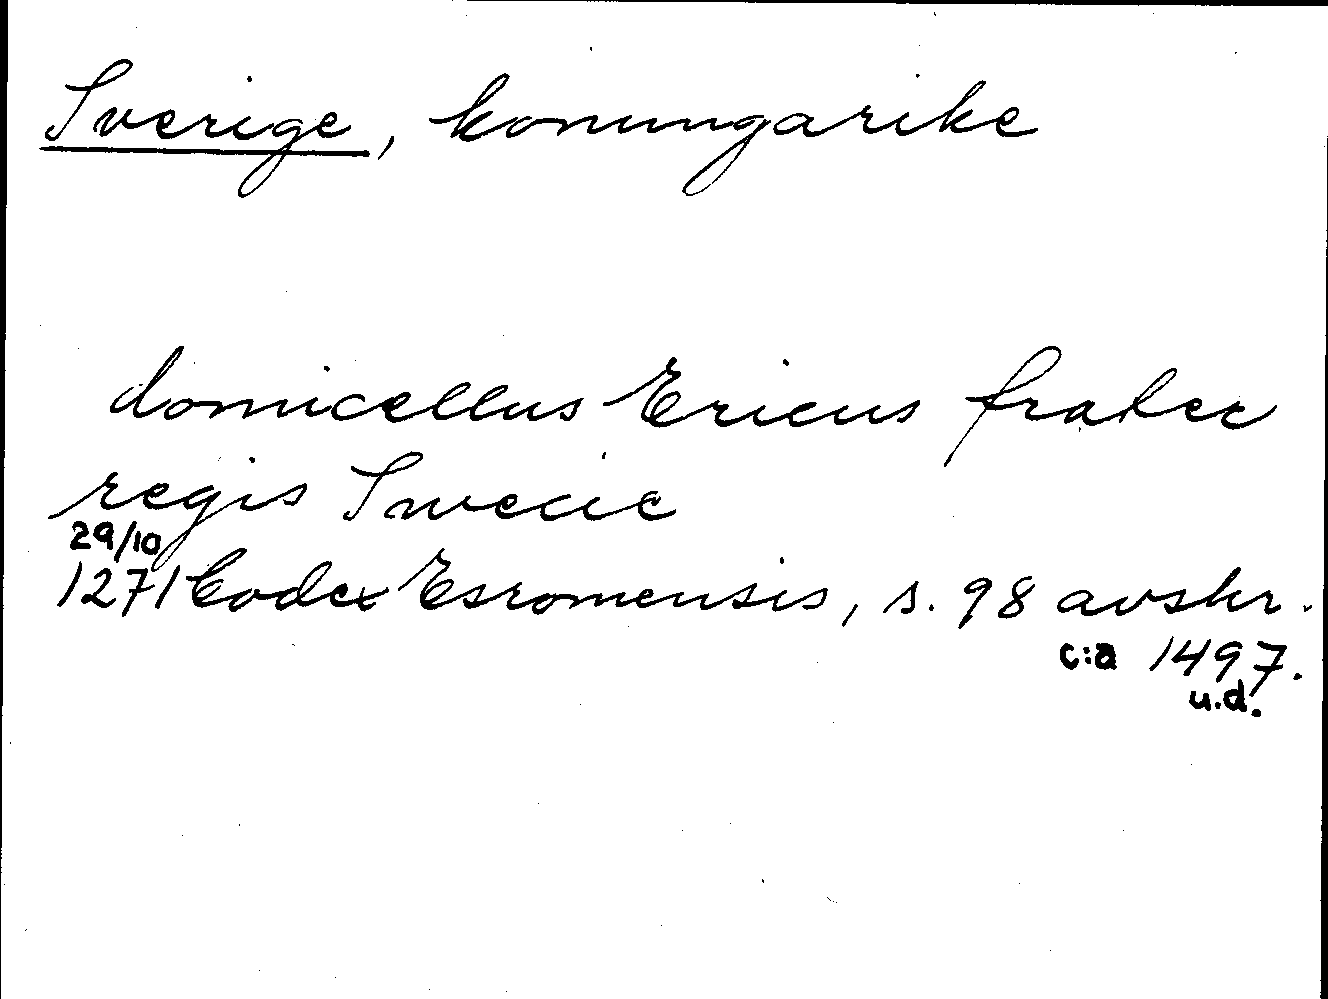 Sverige, konungarike
domicellus Ericus frater
regis Swecie
29/10
1271 Codex Esromensis, s. 98 avskr.
c:a 1497.
u.d.